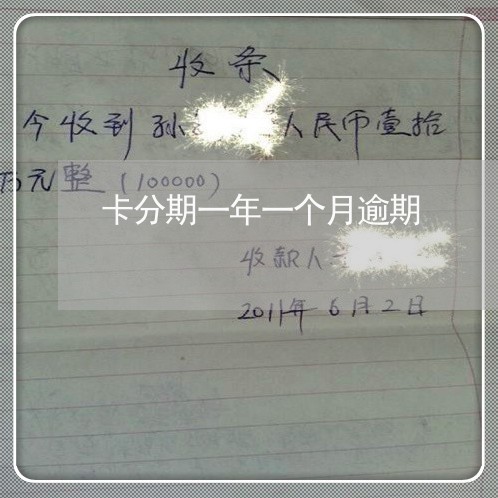 收条
今收到 孙 人民币壹拾
万元整（100000）
卡分期一年一个月逾期
收款人
2011年6月2日